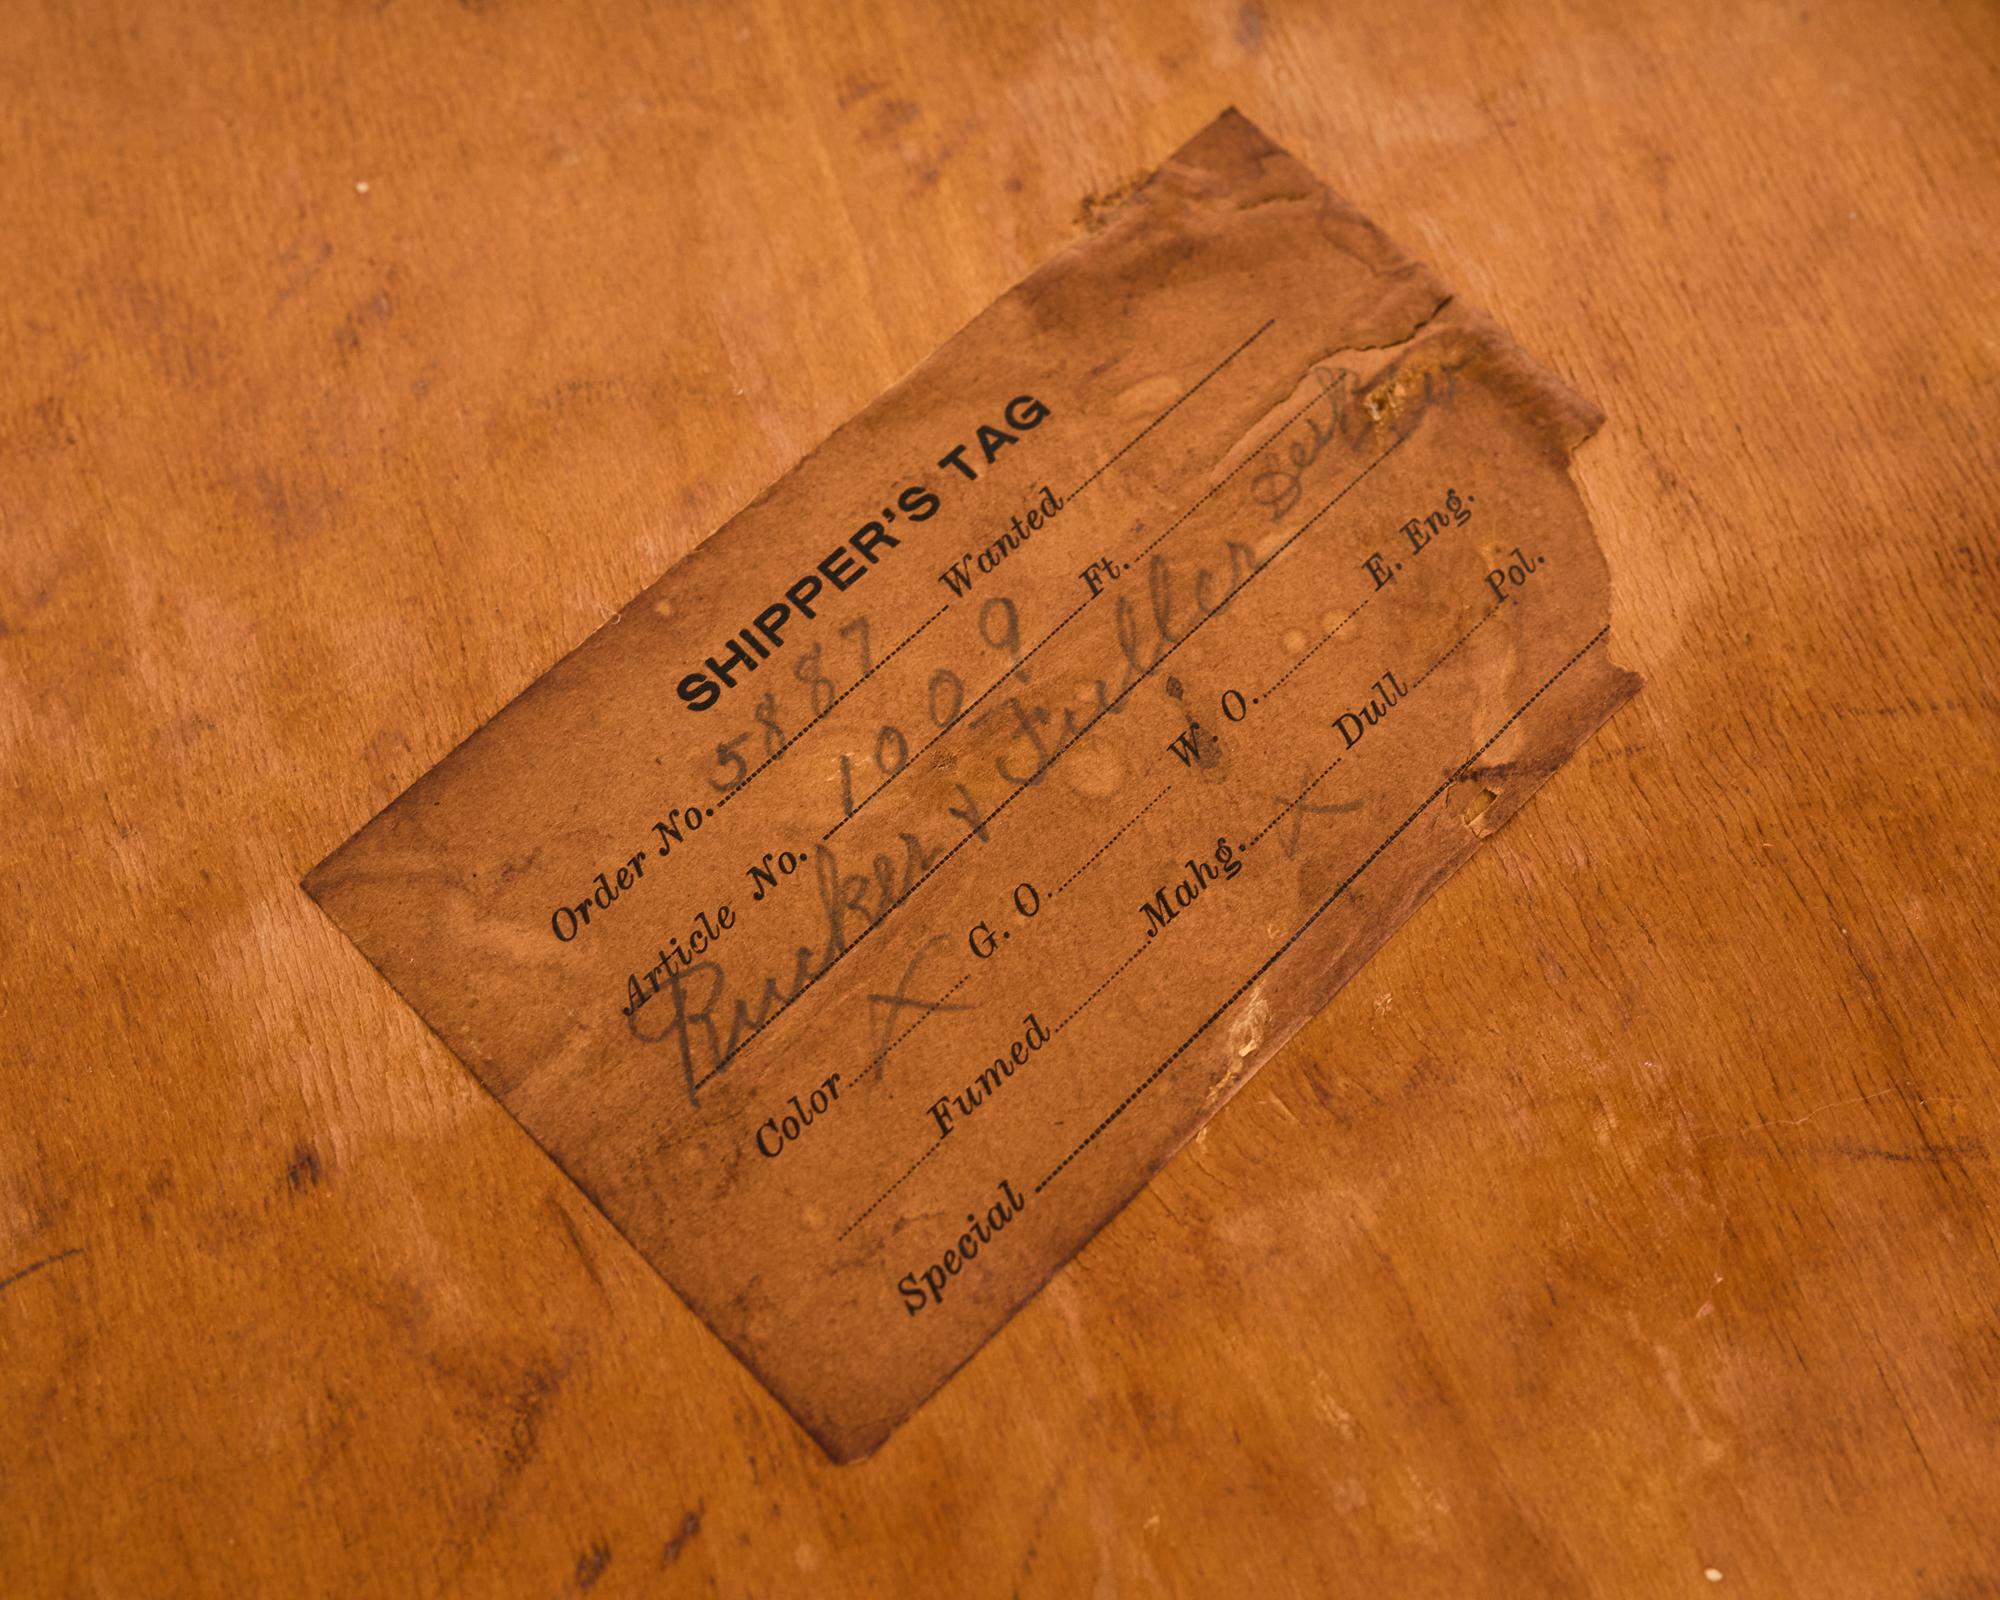 SHIPPER'S TAG
Order No. 5887 Wanted
Article No. 1009 Ft.
Rucker & Fuller Desk
Color X G. O. W. O. E. Eng.
Fumed Mahg. X Dull Pol.
Special